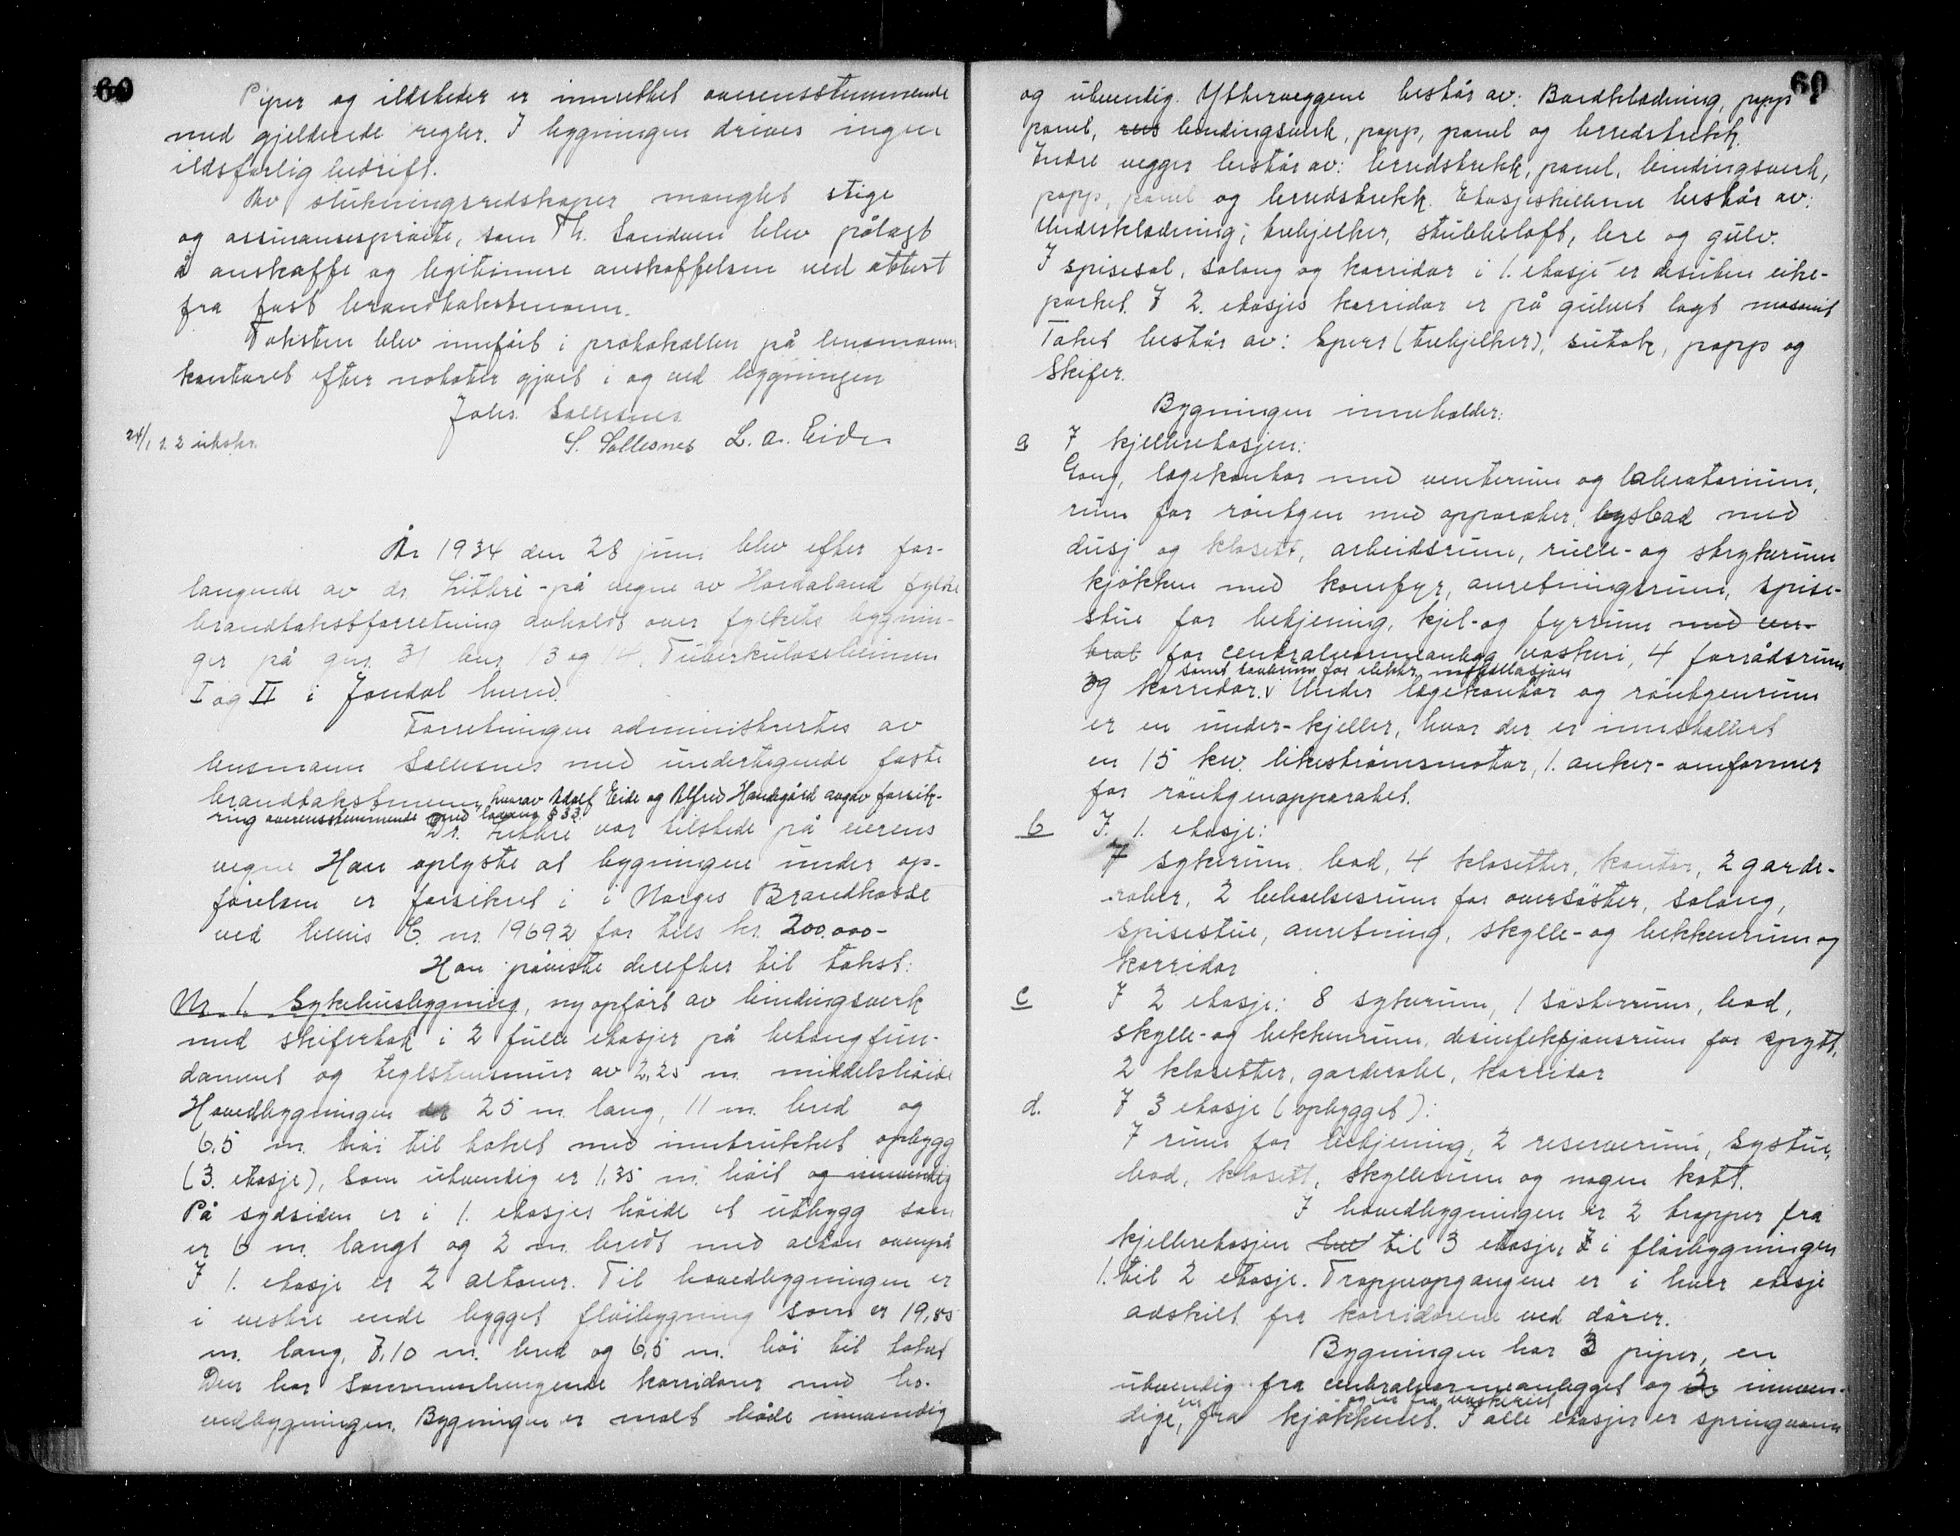 60
Piper og ildsteder er innrettet overensstemmende
med gjeldende regler. I bygningen drives ingen
ildsfarlig bedrift.
Av slukningsredskaper manglet stige
og assuransesprøite, som Th. Sandven blev pålagt
å anskaffe og legitimere anskaffelsen ved attest
fra fast brandtakstmann.
Taksten blev innført i protokollen på lensmanns
kontoret efter notater gjort i og ved bygningen
Johs. Sollesnes
S. Sollesnes L. A. Eide
24/1 1. 2 utskr.
År 1934 den 28 juni blev efter for-
langende av dr Lithre - på vegne av Hordaland fylke
brandtakstforretning avholdt over fylkets bygnin-
ger på gnr. 31 bnr 13 og 14, Tuberkuloseheimen
I og II i Jondal herred.
Forretningen administrertes av
lensmann Sollesnes med undertegnede faste
brandtakstmenn, hvorav Adolf Eide og Alfred Handegård avgav forsik-
ring overensstemmende med lovens § 33.
Dr. Lithre var tilstede på eierens
vegne Han oplyste at bygningene under op-
førelsen er forsikret i i Norges Brandkasse
ved bevis C. nr. 19692 for tils kr. 200.000-
Han påviste derefter til takst:
Nr. 1. Sykehusbygning, nyopført av bindingsverk
med skifertak i 2 fulle etasjer på betongfun-
dament og teglstensmur av 2,25 m. middelshøide
Hovedbygningen er 25 m. lang, 11 m. bred og
6,5 m. høi til taket med inntrukket opbygg
(3. etasje), som utvendig er 1,35 m. høit og innvendig
På sydsiden er i 1. etasjes høide et utbygg som
er 6 m. langt og 2 m. bredt med altan ovenpå
I 1. etasje er 2 altaner. Til hovedbygningen er
i vestre ende bygget fløibygning som er 19,85
m. lang, 7,10 m. bred og 6,5 m. høi til taket
Den har sammenhengende korridorer med ho-
vedbygningen. Bygningen er malt både innvendig
60
og utvendig. Ytterveggene består av: Bordklædning, papp
panel, bindingsverk, papp, panel og lerredstrekk.
Indre vegger består av: lerredstrekk, panel, bindingsverk,
papp, panel og lerredstrekk. Etasjeskillerne består av:
Underklædning, trebjelker, stubbeloft, lere og gulv.
I spisesal, salong og korridor i 1. etasje er desuten eike-
parket. I 2. etasjes korridor er på gulvet lagt masonit
Taket består av: Sperr (trebjelker), sutak, papp og
Skifer.
Bygningen inneholder:
a I kjelleretasjen:
Gang, lægekontor med venterum og laboratorium,
rum for røntgen med apparater, lysbad med
dusj og klosett, arbeidsrum, rulle- og strykerum
kjøkken med komfyr, anretningsrum, spise-
stue for betjening, kjel- og fyrrum med cen-
tral for centralvarmeanlegg vaskeri, 4 forrådsrum
samt tavlerum for elektr.
og korridor. v Under lægekontor og røntgenrum
er en under-kjeller, hvor der er innstallert
en 15 kw. likestrømsmotor, 1. anker-omformer
for røntgenapparatet.
b I. 1. etasje:
7 sykerum, bad, 4 klosetter, kontor, 2 garde-
rober, 2 beboelsesrum for oversøster, salong,
spisestue, anretning, skylle- og bekkenrum og
korridor
c I 2 etasje: 8 sykerum, 1 søsterrum, bad,
skylle- og bekkenrum, desinfeksjonsrum for spytt,
2 klosetter, garderobe, korridor
d. I 3 etasje (opbygget):
7 rum for betjening, 2 reserverum, systue,
bad, klosett, skyllerum og nogen kott.
I hovedbygningen er 2 trapper fra
kjelleretasjen til 3 etasje, i fløibygningen
1. til 2 etasje. Trappeopgangene er i hver etasje
adskilt fra korridorene ved dører.
Bygningen har 3 piper, en
utvendig fra centralvarmeanlegget og 2 innven-
en og en fra vaskeriet
dige, fra kjøkkenet. I alle etasjer er springvann